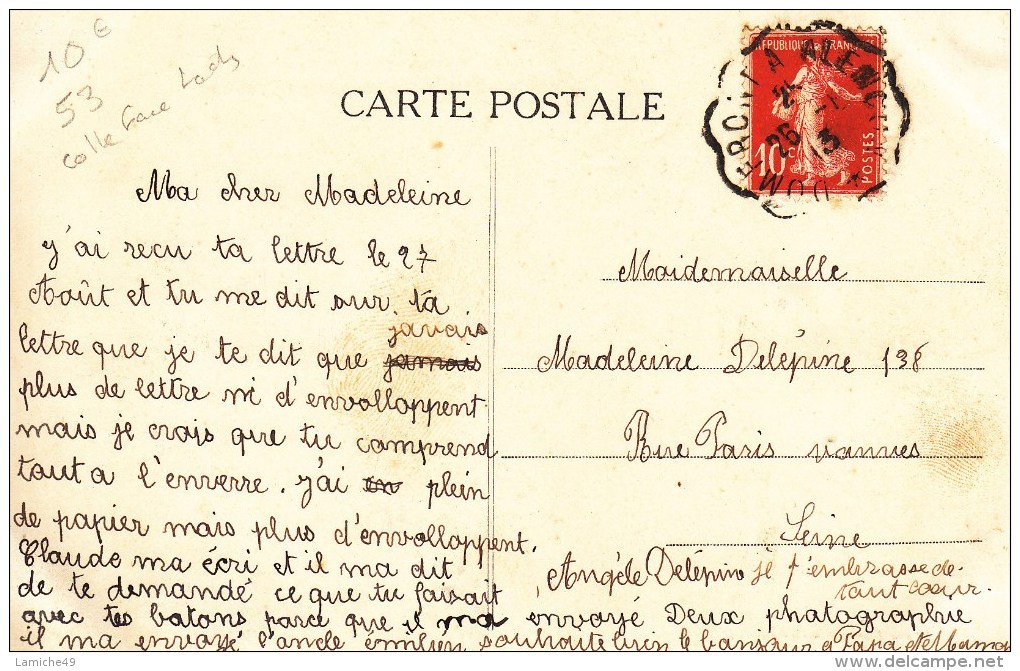 10 €
53
CARTE POSTALE
REPUBLIQUE FRANÇAISE
10c
POSTES
26
13
Ma cher Madeleine
j'ai recu ta lettre le 27
Août et tu me dit sur ta
lettre que je te dit que javais
jamais
plus de lettre ni d'envolloppent
mais je crois que tu comprend
tout a l'enverre. j'ai en plein
de papier mais plus d'envolloppent.
Claude ma écri et il ma dit
de te demandé ce que tu faisait
avec tes batons parce que il ma envoyé Deux photographie
il ma envoyé l'oncle émilien souhaite bien le bonjour a Papa et Maman
Angéle Delépine je t'embrasse de
tout coeur.
Maidemaiselle
Madeleine Delépine 138
Rue Paris vanves
Seine
Lamiche49
© delcampe.net